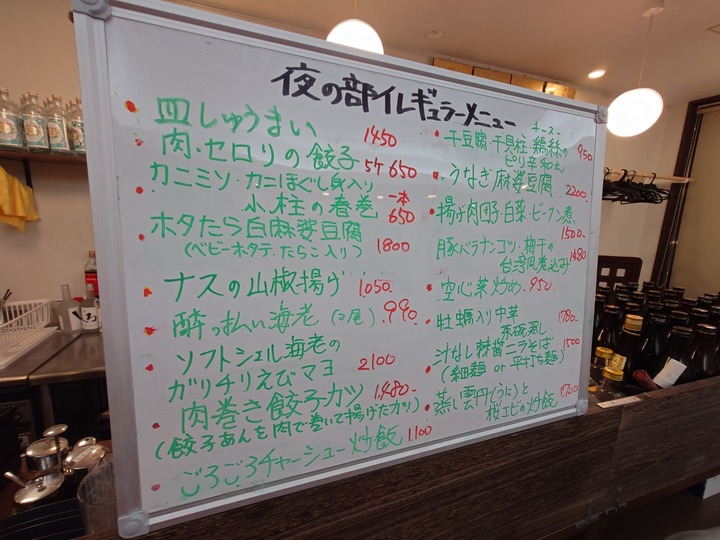 夜の部イレギュラーメニュー
皿しゅうまい 1450
肉・セロリの餃子 5ヶ 650
カニミソ・カニほぐし身入り
小柱の春巻 一本 650
ホタたら白麻婆豆腐
(ベビーホタテ、たらこ入り) 1800
ナスの山椒揚げ 1,050.
酔っぱい海老 (2尾) .990.
ソフトシェル海老の
ガリチリえびマヨ 2100
肉巻き餃子カツ 1,480-
(餃子あんを肉で巻いて揚げたカツ)
ごろごろチャーシュー炒飯 1,100
干豆腐・干貝柱・鶏絲の
ピリ辛和え 950
うなぎ麻婆豆腐 2200.
揚げ肉団子・白菜・ビーフン煮 1500-
豚バラナンコツ・梅干の
台湾風煮込み 1480
空心菜炒め .950.
牡蠣入り中華
茶碗蒸し 1780-
汁なし辣醤ニラそば 1500
(細麺 or 平打ち麺)
蒸し雲丹(うに)と
桜エビの炒飯 1700